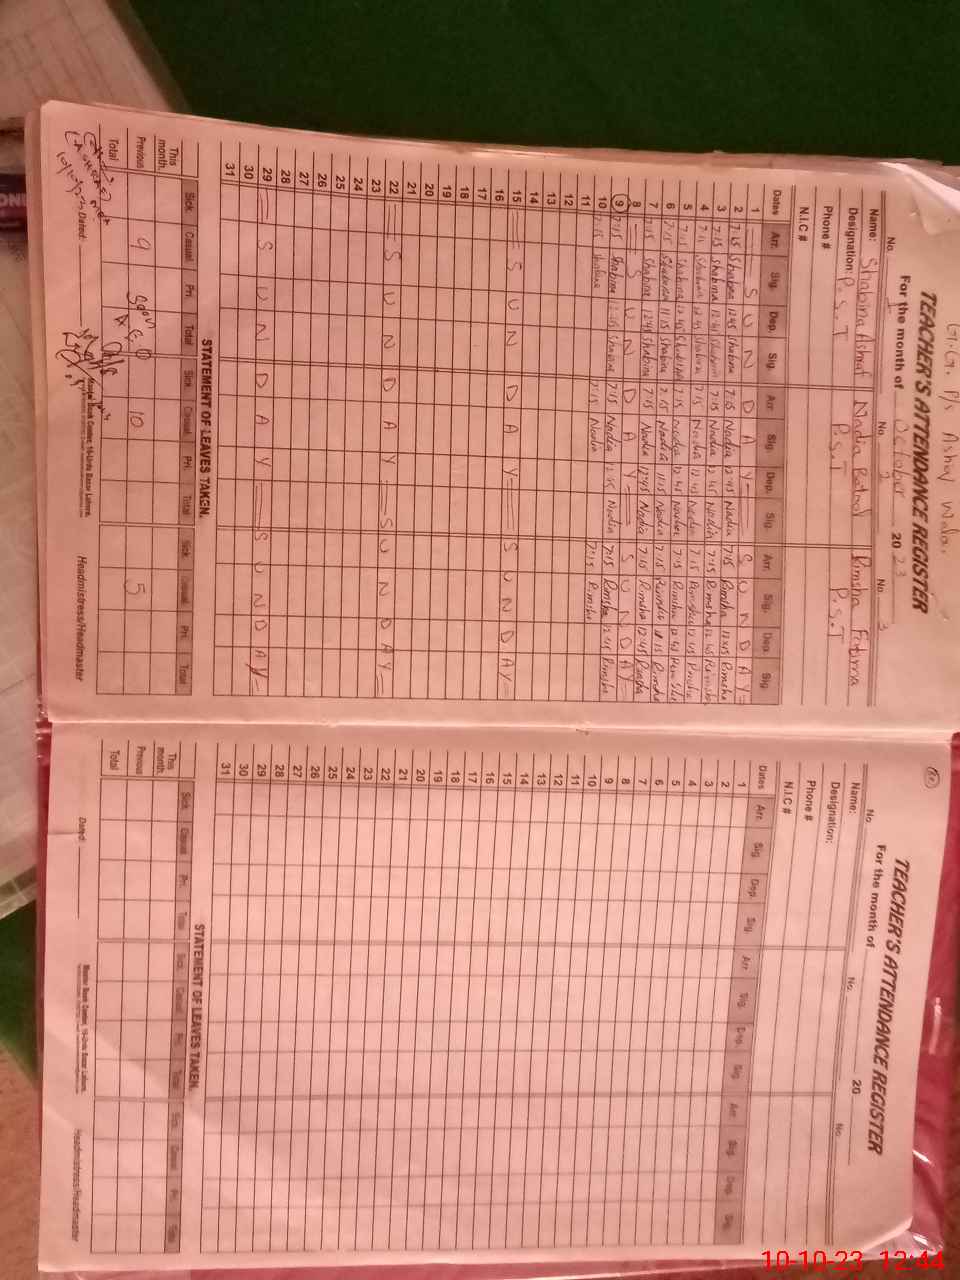 G.G. P/s Ashraf Wala.
TEACHER'S ATTENDANCE REGISTER
For the month of October 2023
No. 1 No. 2 No. 3
Name: Shabina Ashraf Nadia Batool Rimsha Fatima
Designation: P.S.T P.S.T P.S.T
Phone #
N.I.C #
Dates Arr. Sig. Dep. Sig. Arr. Sig. Dep. Sig. Arr. Sig. Dep. Sig.
1 S U N D A Y S U N D A Y
2 7:15 Shabina 12:45 Shabina 7:15 Nadia 12:45 Nadia 7:15 Rimsha 12:45 Rimsha
3 7:15 Shabina 12:45 Shabina 7:15 Nadia 12:45 Nadia 7:15 Rimsha 12:45 Rimsha
4 7:15 Shabina 12:45 Shabina 7:15 Nadia 12:45 Nadia 7:15 Rimsha 12:45 Rimsha
5 7:15 Shabina 12:45 Shabina 7:15 Nadia 12:45 Nadia 7:15 Rimsha 12:45 Rimsha
6 7:15 Shabina 11:15 Shabina 7:15 Nadia 11:15 Nadia 7:15 Rimsha 11:15 Rimsha
7 7:15 Shabina 12:45 Shabina 7:15 Nadia 12:45 Nadia 7:15 Rimsha 12:45 Rimsha
8 S U N D A Y S U N D A Y
9 7:15 Shabina 12:45 Shabina 7:15 Nadia 12:45 Nadia 7:15 Rimsha 12:45 Rimsha
10 7:15 Shabina 7:15 Nadia 7:15 Rimsha
11
12
13
14
15 S U N D A Y S U N D A Y
16
17
18
19
20
21
22 S U N D A Y S U N D A Y
23
24
25
26
27
28
29 S U N D A Y S U N D A Y
30
31
STATEMENT OF LEAVES TAKEN.
Sick. Casual Pri. Total Sick. Casual. Pri. Total Sick. Casual Pri. Total
This month.
Previous 9 10 5
Total
Dated:
Master Book Center, 10-Urdu Bazar Lahore.
Headmistress/Headmaster
TEACHER'S ATTENDANCE REGISTER
For the month of 20
No. No. No.
Name:
Designation:
Phone #
N.I.C #
Dates Arr. Sig. Dep. Sig. Arr. Sig. Dep. Sig. Arr. Sig. Dep. Sig.
1
2
3
4
5
6
7
8
9
10
11
12
13
14
15
16
17
18
19
20
21
22
23
24
25
26
27
28
29
30
31
STATEMENT OF LEAVES TAKEN.
Sick. Casual Pri. Total Sick. Casual Pri. Total Sick. Casual Pri. Total
This month.
Previous
Total
Dated:
Master Book Center, 10-Urdu Bazar Lahore.
Headmistress/Headmaster
10-10-23 12:44